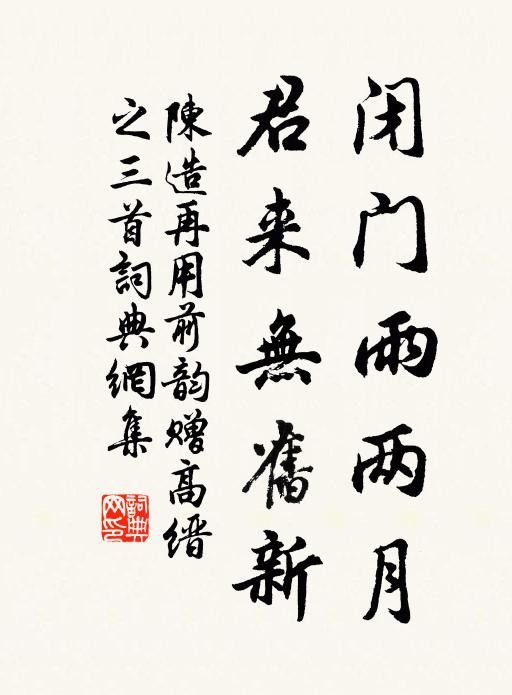 闭门雨两月
君来無舊新
陳造再用前韵赠高缙
之三首詞典網集
詞典
网印